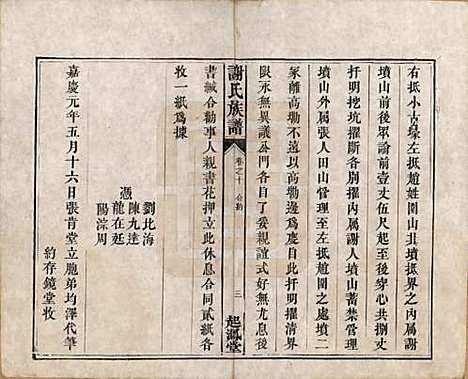 右抵小古㙩左抵趙姓圍山北墳抵界之內屬謝
墳山前後眾論前壹丈伍尺后至墳堂心共捌丈
扦明挖坑擢斷各別擢內屬謝人墳山蓄禁管理
墳山外屬張人田山管理至左抵趙圍之處墳二
冢離高塝不遠以高塝邊爲慶自此扦明擢清界
限永無異議公門各目了妥親誼式好無尤息後
書緘合勸事人親書花押立此休息合同貳紙各
收一紙爲㨿
劉北海
陳九達
憑
龍在廷
陽淙周
嘉慶元年五月十六日張肯堂立胞弟均澤代筆
約存鏡堂收
謝氏族譜
卷之十
合約
三
起鳳堂